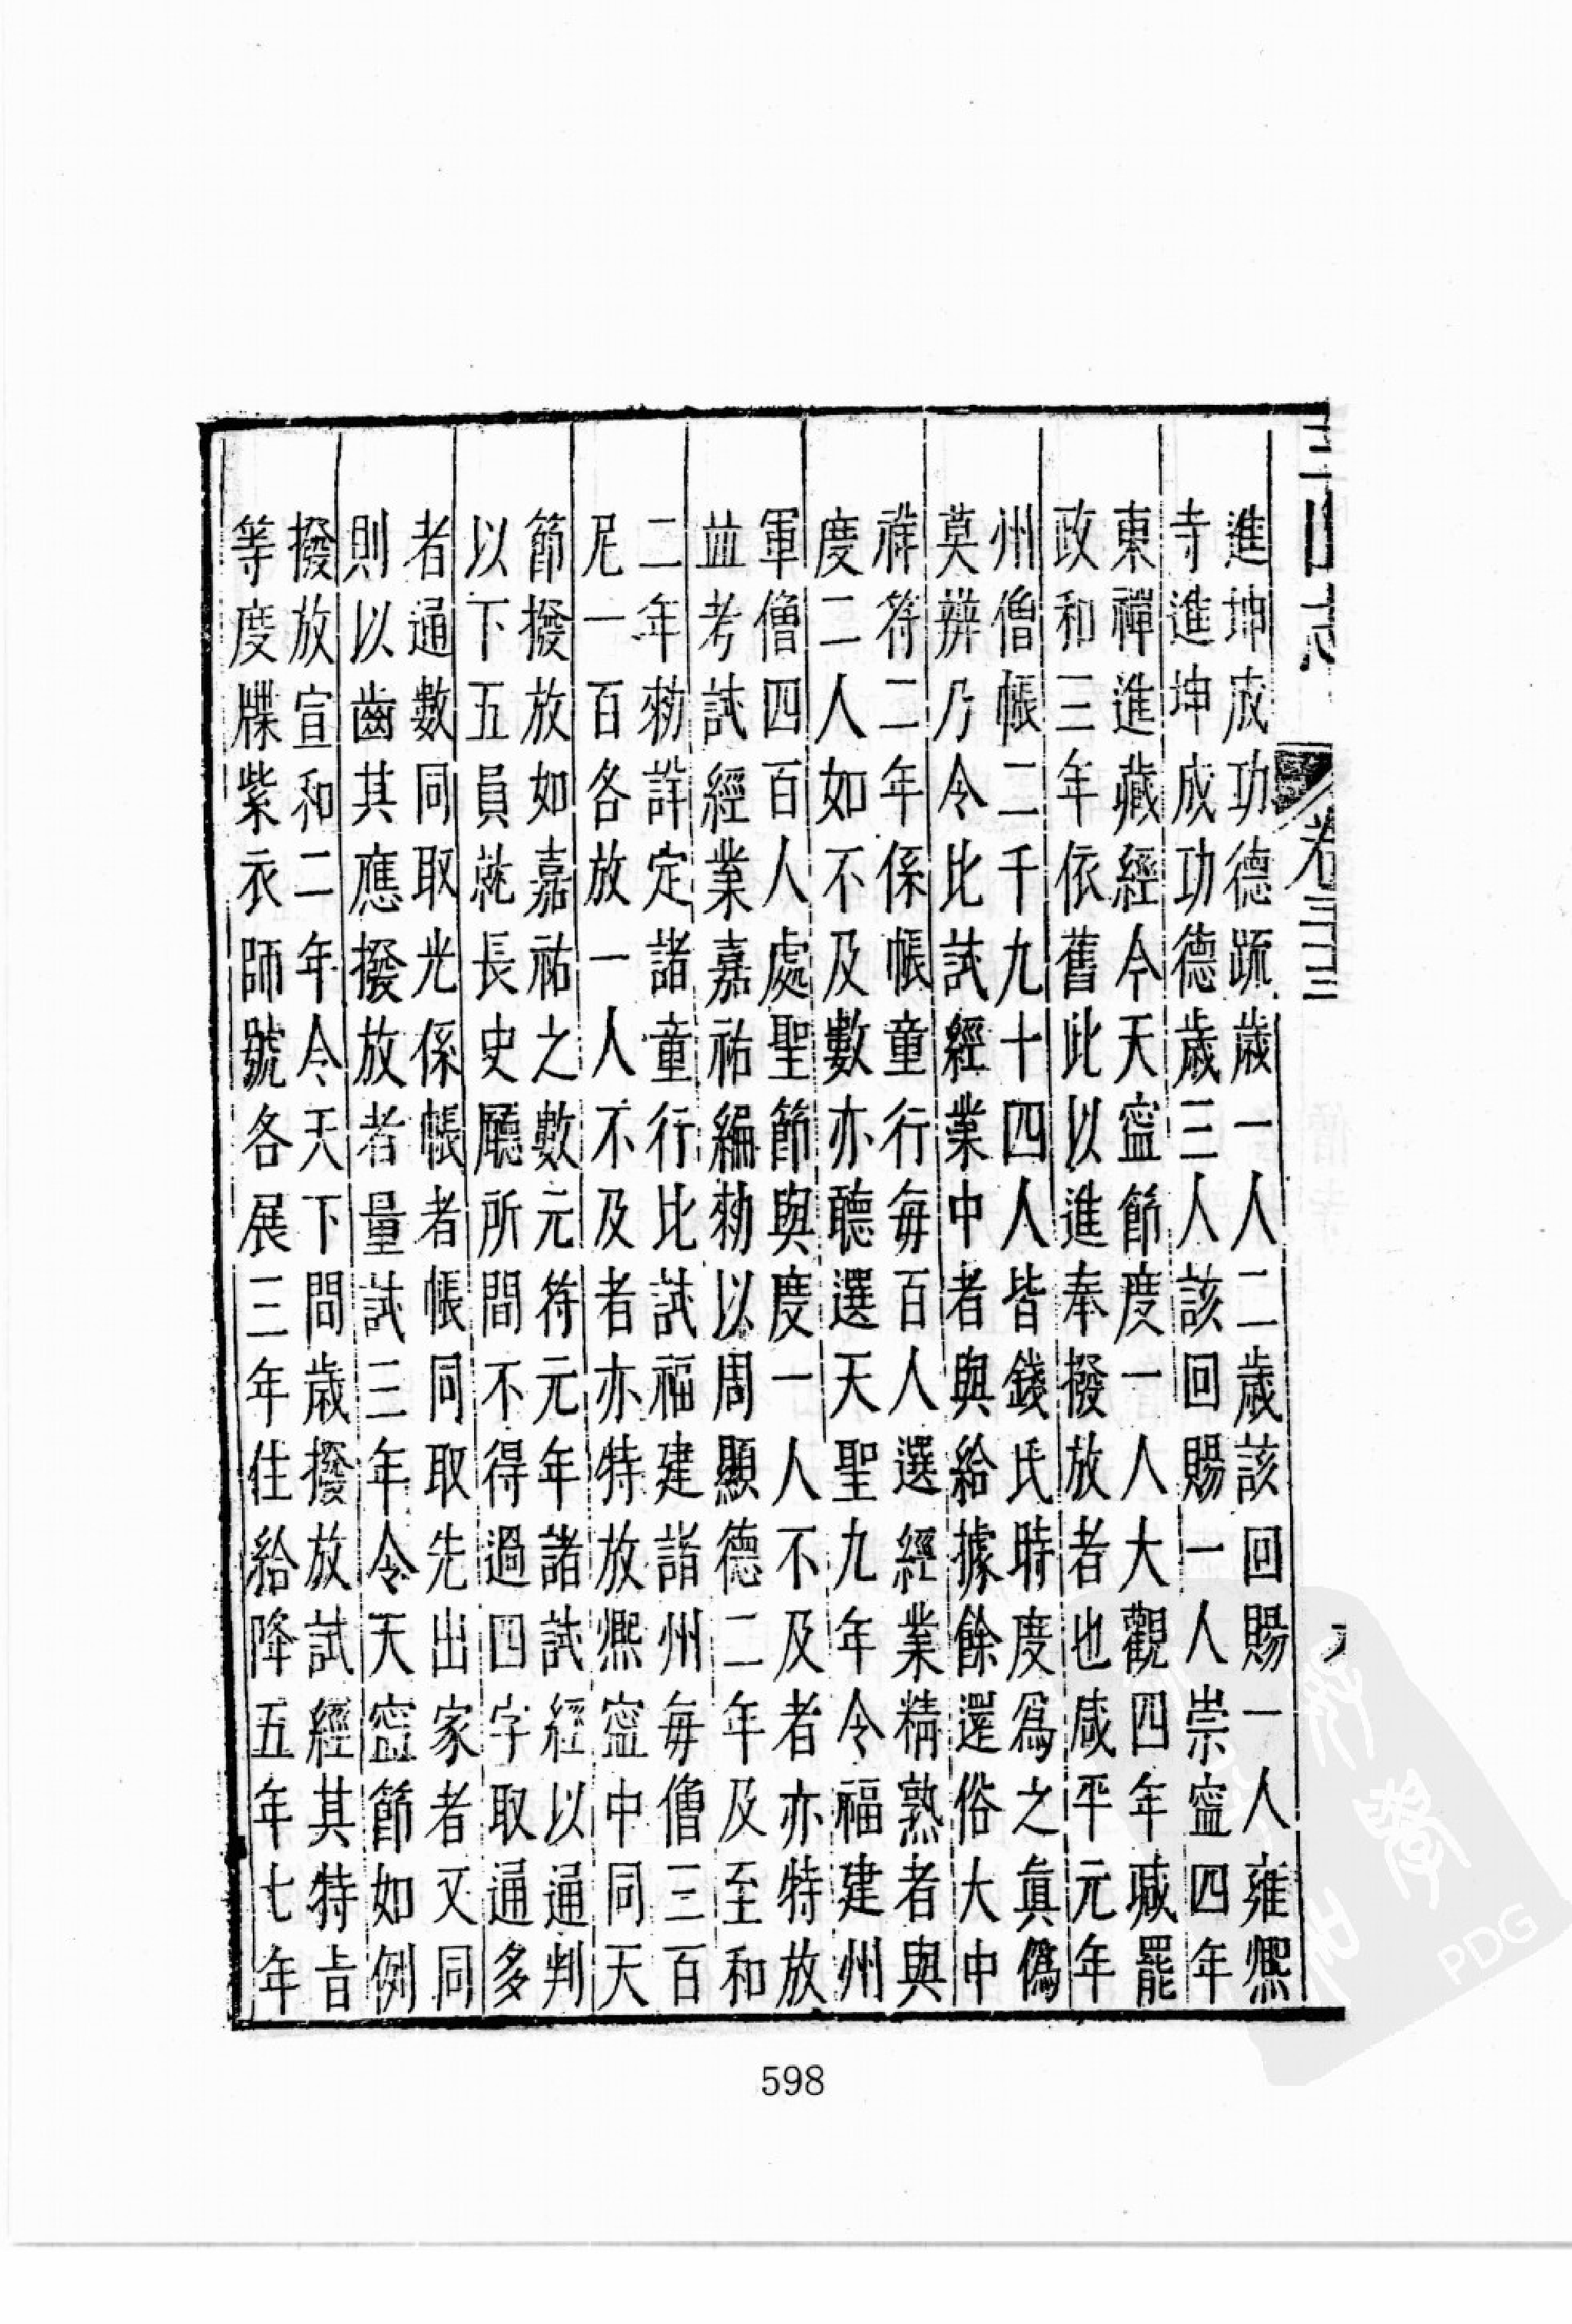 三山志 卷三十三
進坤成功德疏歲一人二歲該回賜一人雍熙
寺進坤成功德歲三人該回賜一人崇寍四年
東禪進藏經今天寍節度一人大觀四年減罷
政和三年依舊此以進奉撥放者也咸平元年
州僧帳二千九十四人皆錢氏時度爲之眞僞
莫辨乃令比試經業中者與給據餘還俗大中
祥符二年係帳童行每百人選經業精熟者與
度二人如不及數亦聽選天聖九年令福建州
軍僧四百人處聖節與度一人不及者亦特放
並考試經業嘉祐編勑以周顯德二年及至和
二年勑詳定諸童行比試福建諸州每僧三百
尼一百各放一人不及者亦特放熙寍中同天
節撥放如嘉祐之數元符元年諸試經以通判
以下五員就長史廳所間不得過四字取通多
者通數同取光係帳者帳同取先出家者又同
則以齒其應撥放者量試三年令天寍節如例
撥放宣和二年令天下間歲撥放試經其特旨
等度牒紫衣師號各展三年住給降五年七年
598
PDG